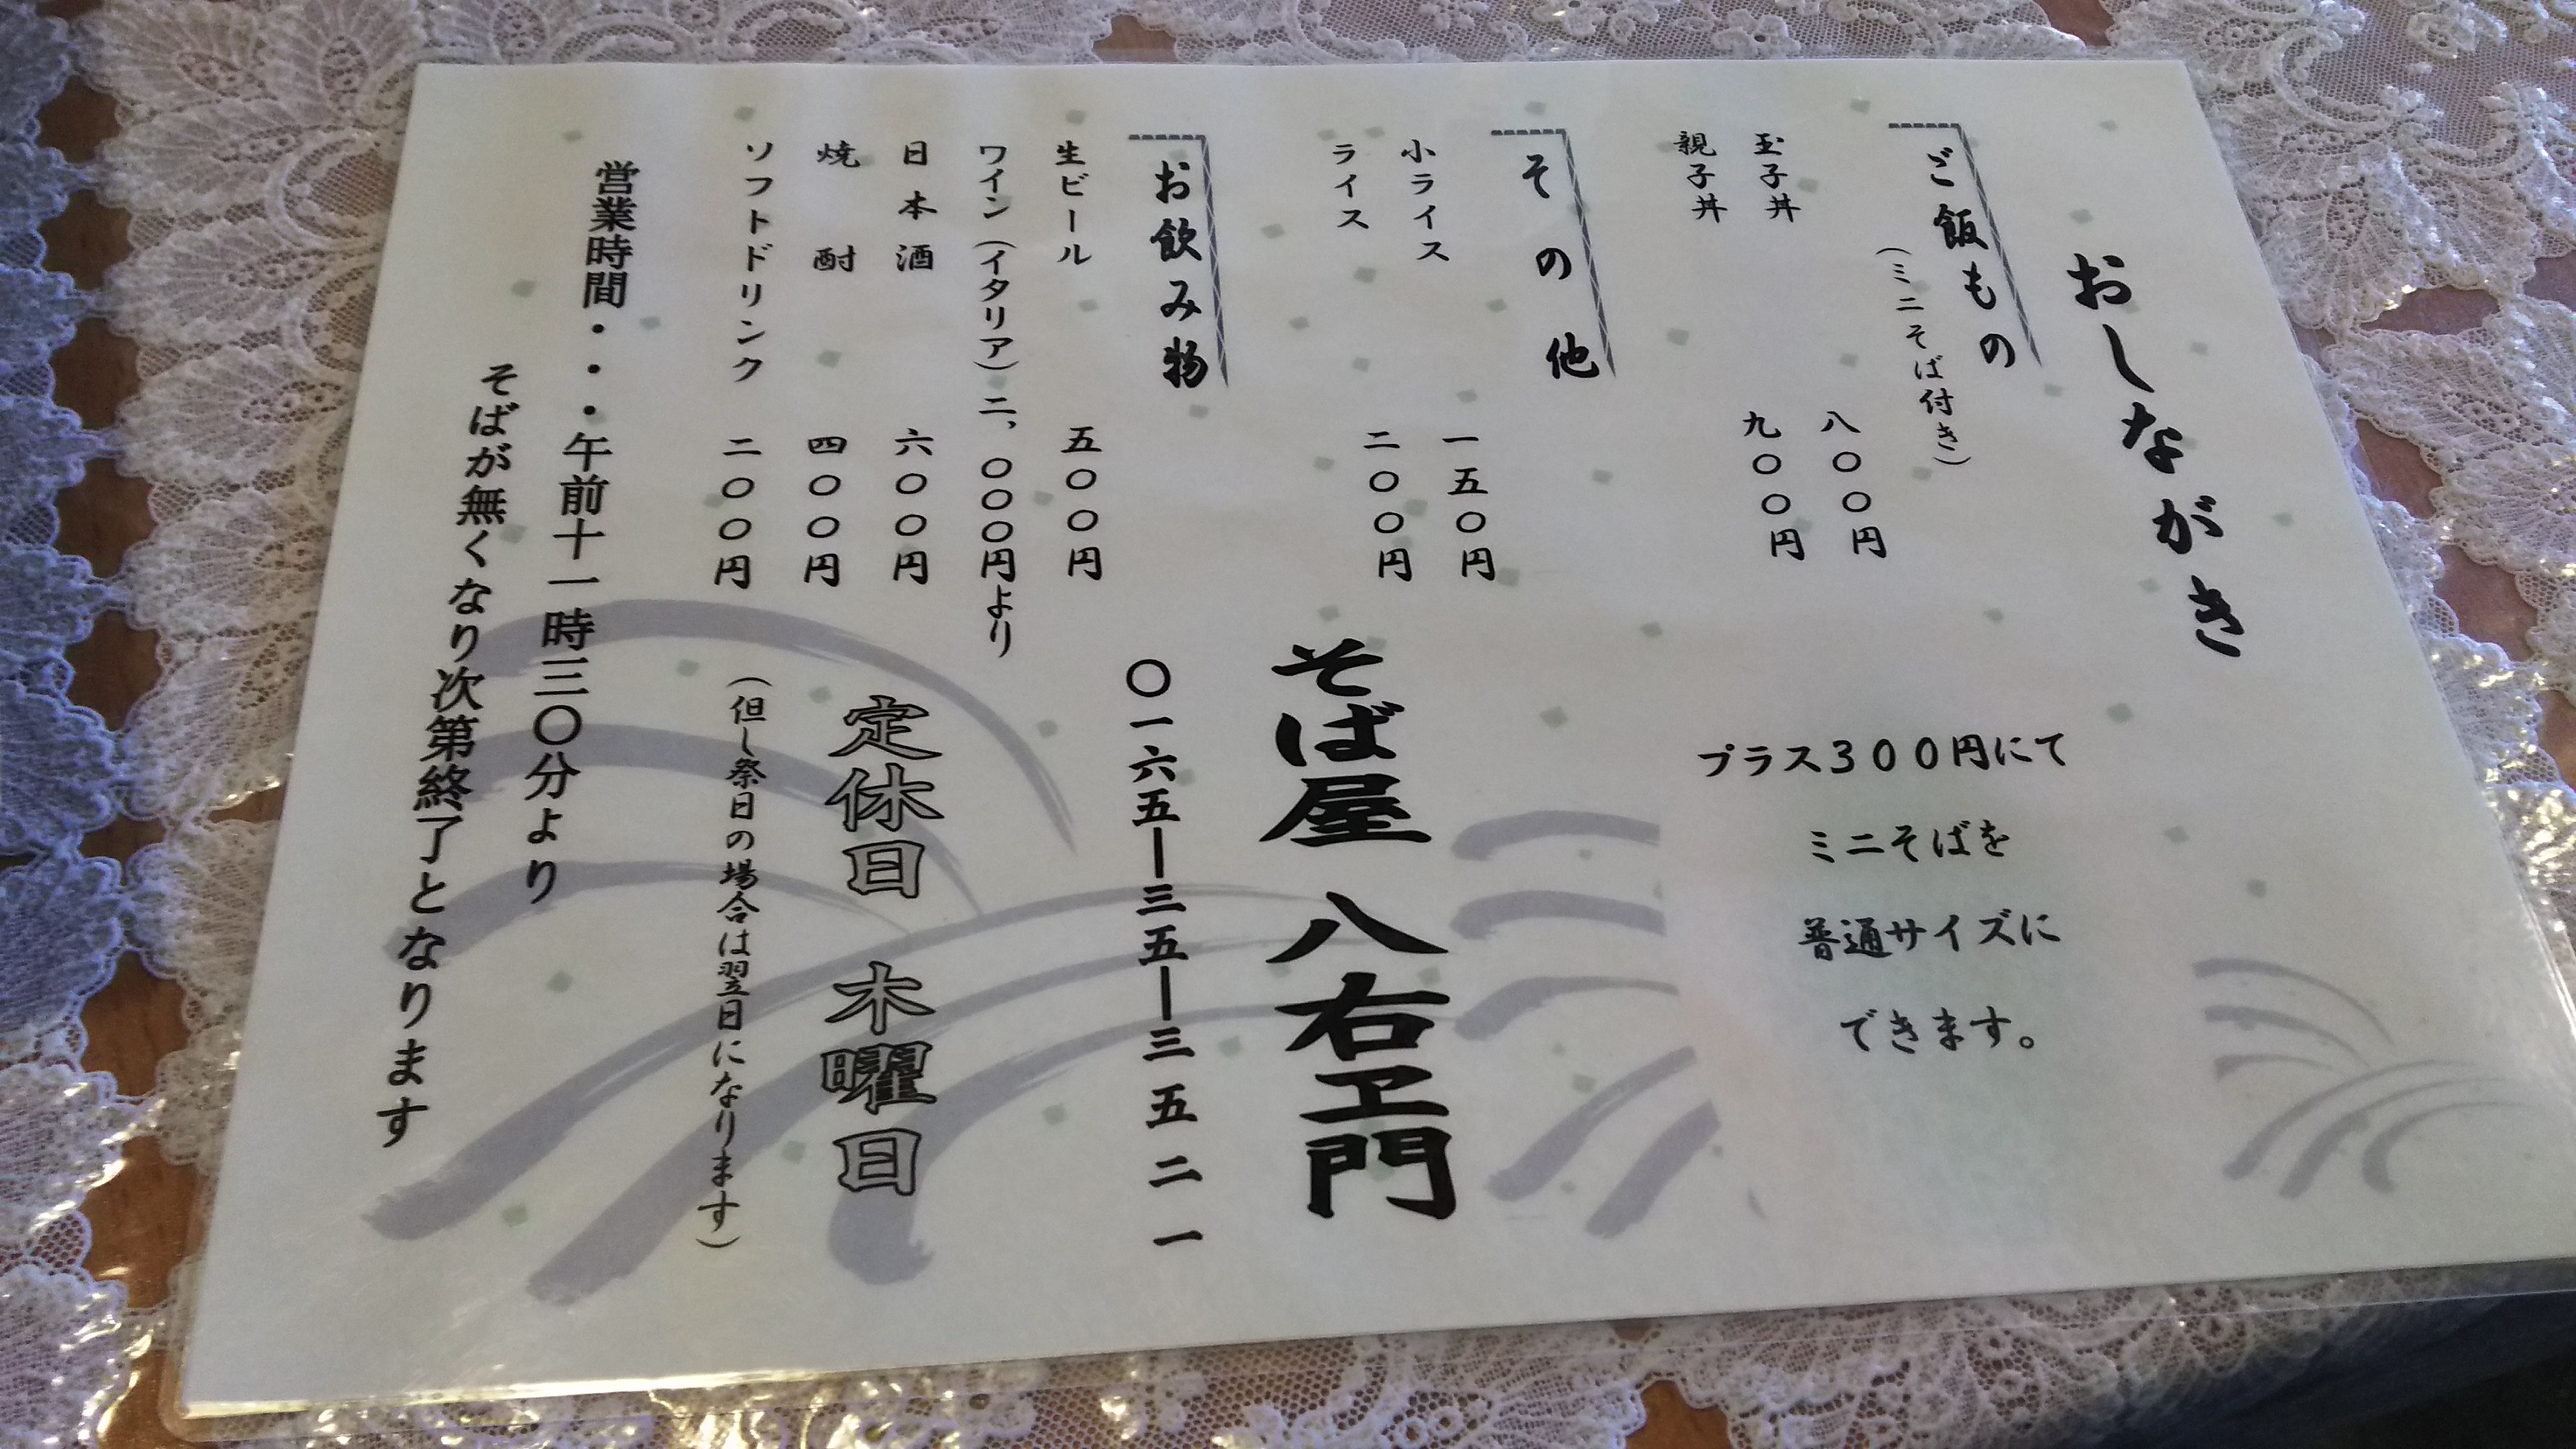 おしながき
ご飯もの
（ミニそば付き）
玉子丼 八〇〇円
親子丼 九〇〇円
プラス３００円にて
ミニそばを
普通サイズに
できます。
その他
小ライス 一五〇円
ライス 二〇〇円
お飲み物
生ビール 五〇〇円
ワイン（イタリア）二、〇〇〇円より
日本酒 六〇〇円
焼酎 四〇〇円
ソフトドリンク 二〇〇円
そば屋 八右ヱ門
〇一六五ー三五ー三五二一
定休日 木曜日
（但し祭日の場合は翌日になります）
営業時間・・・午前十一時三〇分より
そばが無くなり次第終了となります